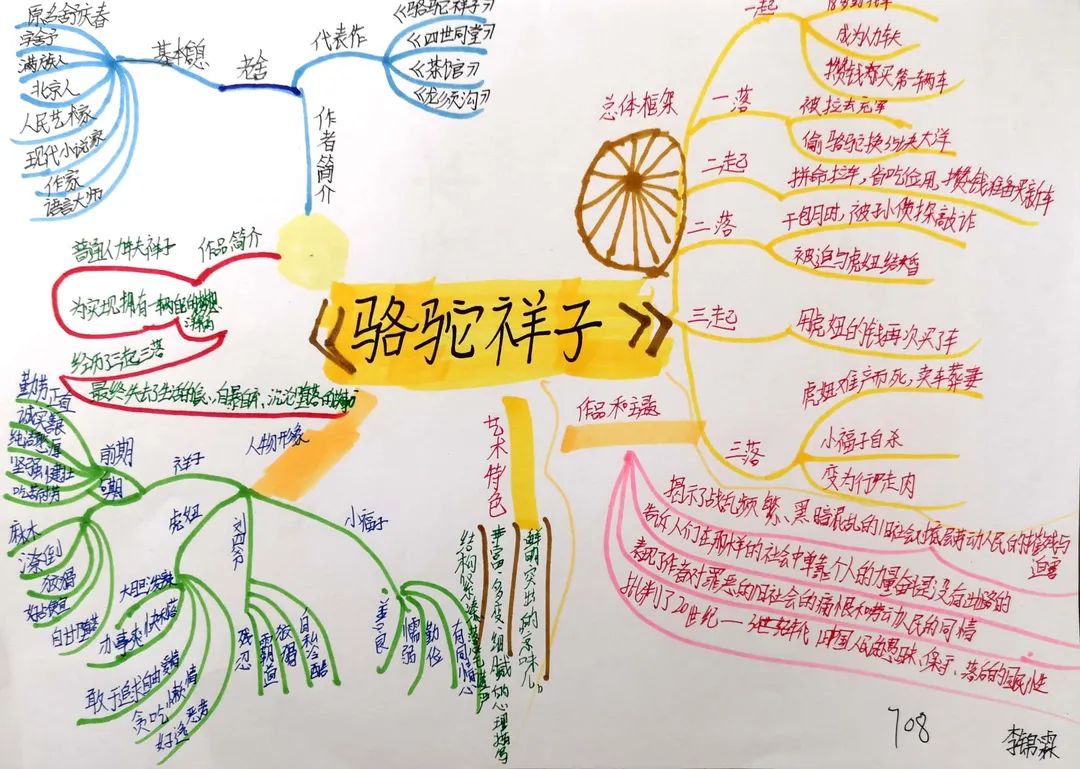 《骆驼祥子》
作者简介
老舍
基本信息
原名舒庆春
字舍予
满族人
北京人
人民艺术家
现代小说家
作家
语言大师
代表作
《骆驼祥子》
《四世同堂》
《茶馆》
《龙须沟》
作品简介
普通人力车夫祥子
为实现拥有一辆自己的
经历了三起三落
最终失去了生活的信心,自暴自弃、沉沦堕落的故事
总体框架
一起
成为人力车夫
攒钱都买第一辆车
一落
被拉去充军
偷骆驼换35块大洋
二起
拼命拉车,省吃俭用,攒钱准备买新车
二落
干包月时,被孙侦探敲诈
被迫与虎妞结婚
三起
用虎妞的钱再次买了车
三落
虎妞难产而死,卖车葬妻
小福子自杀
变为行尸走肉
作品和主题
揭示了战乱频繁、黑暗混乱的旧社会对底层劳动人民的摧残与
迫害
告诉人们在那样的社会中单靠个人的力量奋斗是没有出路的
表现了作者对罪恶的旧社会的痛恨和劳动人民的同情
批判了20世纪
中国人民的愚昧、保守、落后的国民性
艺术特色
鲜明突出的京味儿
丰富、多变、细腻的心理描写
结构紧凑
人物形象
祥子
前期
勤劳正直
诚实善良
坚强健壮
后期
麻木
潦倒
狡猾
自甘堕落
虎妞
大胆泼辣
办事爽快利落
敢于追求自由爱情
贪吃懒惰
好逸恶劳
刘四爷
残忍
霸道
狡猾
自私冷酷
小福子
善良
懦弱
勤俭
有同情心
708
李锦霖